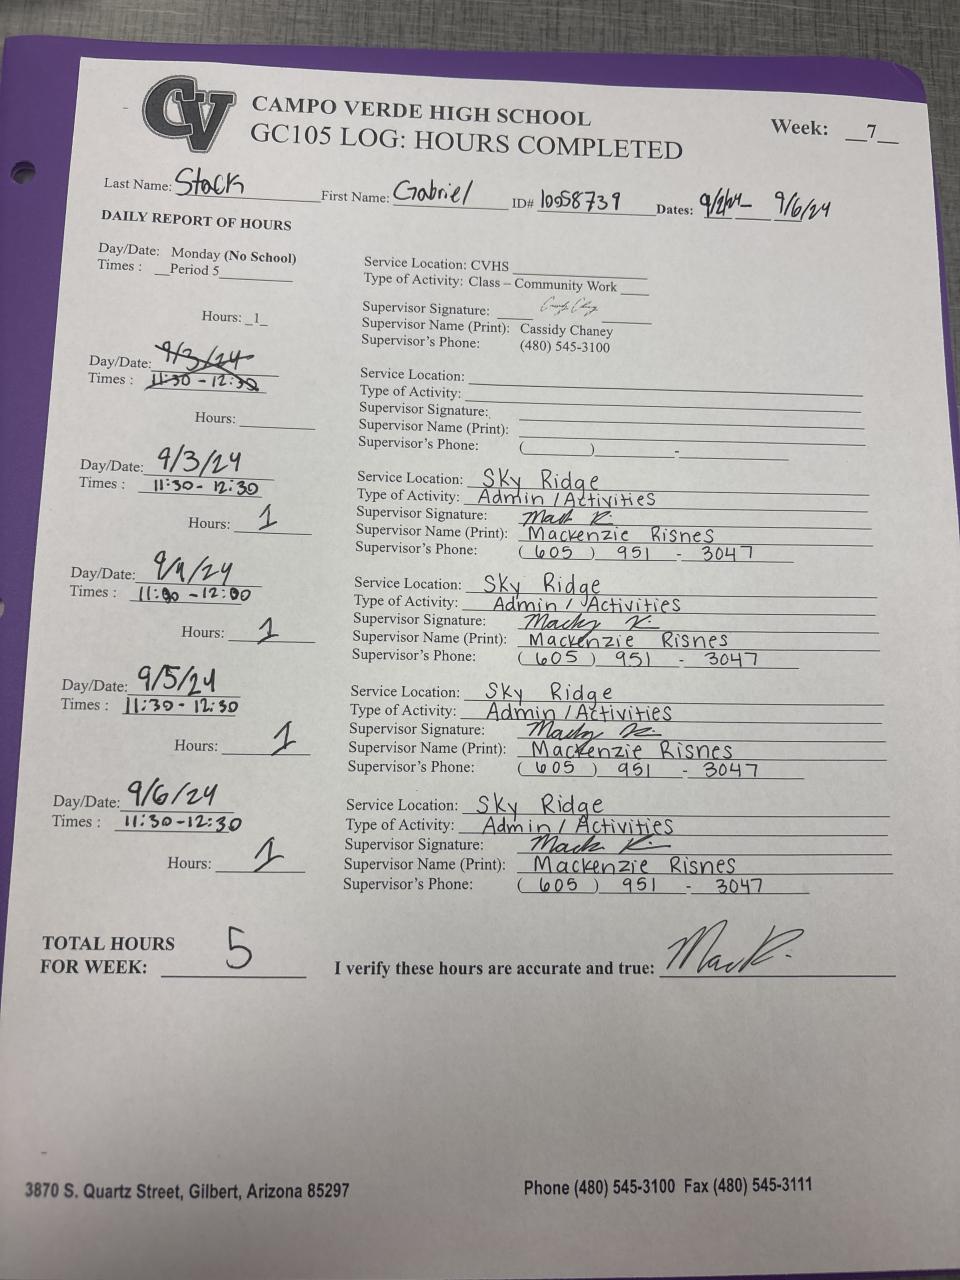 CV
CAMPO VERDE HIGH SCHOOL
GC105 LOG: HOURS COMPLETED
Week: __7__
Last Name: Stack First Name: Gabriel ID# 10558739 Dates: 9/2/24 - 9/6/24
DAILY REPORT OF HOURS
Day/Date: Monday (No School)
Times : __Period 5
Hours: _1_
Service Location: CVHS
Type of Activity: Class – Community Work
Supervisor Signature:
Supervisor Name (Print): Cassidy Chaney
Supervisor's Phone: (480) 545-3100
Day/Date: 9/3/24
Times : 11:30 - 12:30
Hours:
Service Location:
Type of Activity:
Supervisor Signature:
Supervisor Name (Print):
Supervisor's Phone: ( ) -
Day/Date: 9/3/24
Times : 11:30 - 12:30
Hours: 1
Service Location: Sky Ridge
Type of Activity: Admin / Activities
Supervisor Signature: Mack R
Supervisor Name (Print): Mackenzie Risnes
Supervisor's Phone: ( 605 ) 951 - 3047
Day/Date: 9/4/24
Times : 11:00 - 12:00
Hours: 1
Service Location: Sky Ridge
Type of Activity: Admin / Activities
Supervisor Signature:
Supervisor Name (Print): Mackenzie Risnes
Supervisor's Phone: ( 605 ) 951 - 3047
Day/Date: 9/5/24
Times : 11:30 - 12:30
Hours: 1
Service Location: Sky Ridge
Type of Activity: Admin / Activities
Supervisor Signature:
Supervisor Name (Print): Mackenzie Risnes
Supervisor's Phone: ( 605 ) 951 - 3047
Day/Date: 9/6/24
Times : 11:30 - 12:30
Hours: 1
Service Location: Sky Ridge
Type of Activity: Admin / Activities
Supervisor Signature: Mack R
Supervisor Name (Print): Mackenzie Risnes
Supervisor's Phone: ( 605 ) 951 - 3047
TOTAL HOURS
FOR WEEK: 5
I verify these hours are accurate and true: Mack R.
3870 S. Quartz Street, Gilbert, Arizona 85297
Phone (480) 545-3100 Fax (480) 545-3111